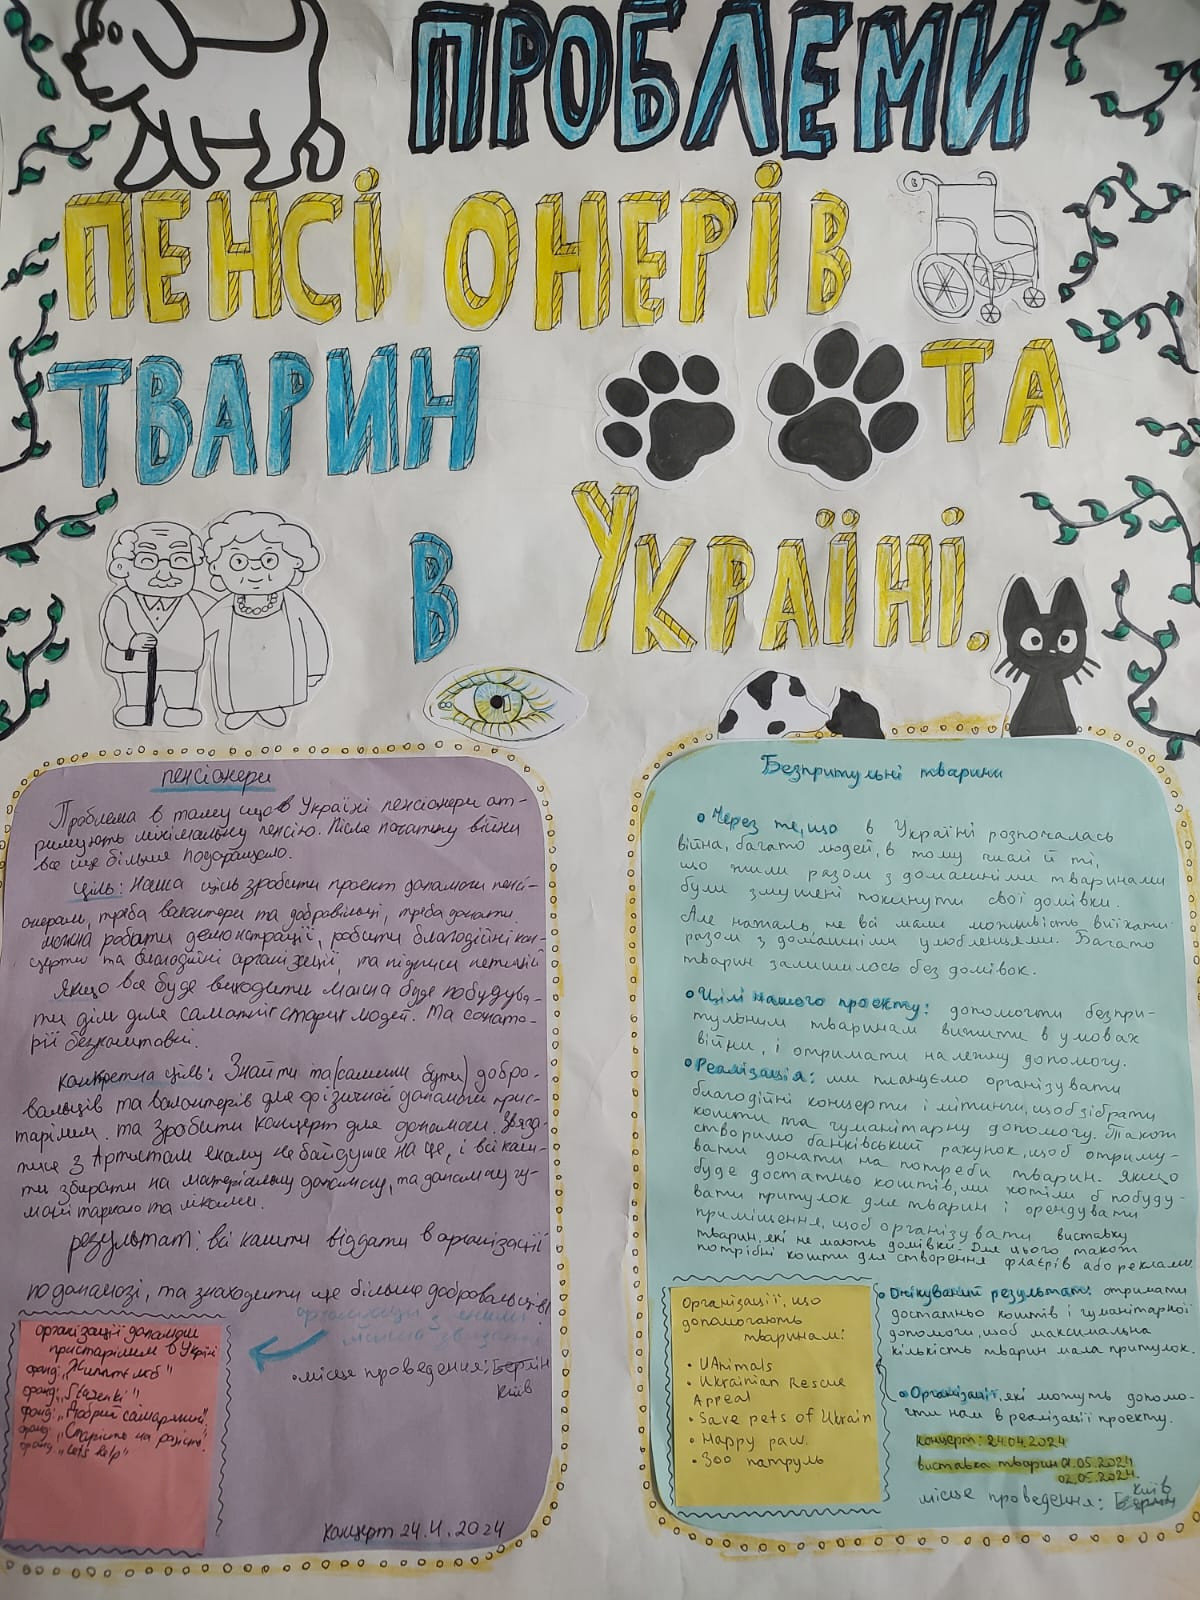 ПРОБЛЕМИ
ПЕНСІОНЕРІВ
ТВАРИН ТА
В УКРАЇНІ.
пенсіонери
Проблема в тому що в Україні пенсіонери от-
римують мінімальну пенсію. Після початку війни
все ще більше погіршено.
Ціль: Наша ціль зробити проект допомоги пенсі-
онерам, треба валонтери та добровільці, треба донати.
можна робити демонстрації, робити благодійні кон-
церти та благодійні організації, та підписи петицій
Якщо все буде виходити можна буде побудува-
ти дім для самотніх старих людей. Та сонато-
рії безкоштовні.
конкретна ціль: Знайти та(самим бути) добро-
вольців та валонтерів для фізичной допомоги прис-
тарілим. та зробити концерт для допомоги. Звяза-
тися з Артистом якому не байдуже на це, і всі кош-
ти збирати на матеріальну допомогу, та допомогу гу-
результат: всі кошти віддати в організації
по допомозі, та знаходити ще більше добровольців!
місце проведення: Берлін
Київ
організації допомоги
пристарілим в Україні
фонд: „Життєлюб"
фонд: „Starenki"
фонд: „Добрий самарянин"
фонд: „Старість на радість".
фонд: „Lets help"
концерт 24.4.2024
Безпритульні тварини
• Через те, що в Україні розпочалась
війна, багато людей, в тому числі й ті,
що жили разом з домашніми тваринами
були змушені покинути свої домівки.
Але нажаль не всі мали можливість виїхати
разом з домашніми улюбленцями. Багато
тварин залишилось без домівок.
• Цілі нашого проєкту: допомогти безпри-
тульним тваринам вижити в умовах
війни, і отримати належну допомогу.
• Реалізація: ми плануємо організувати
благодійні концерти і мітинги, щоб зібрати
кошти та гуманітарну допомогу. Також
створимо банківський рахунок, щоб отриму-
вати донати на потреби тварин. Якщо
буде достатньо коштів, ми хотіли б побуду-
вати притулок для тварин і орендувати
приміщення, щоб організувати виставку
тварин, які не мають домівки. Для цього також
потрібні кошти для створення флаєрів або реклами.
Організації, що
допомагають
тваринам:
• UAnimals
• Ukrainian Rescue
Appeal
• Save pets of Ukrain
• Happy paw.
• Зоо патруль
• Очікуваний результат: отримати
достатньо коштів і гуманітарної
допомоги, щоб максимальна
кількість тварин мала притулок.
• Організації, які можуть допомо-
гти нам в реалізації проєкту.
концерт: 24.04.2024
виставка тварин 01.05.2024
02.05.2024.
Київ
місце проведення: Берлін